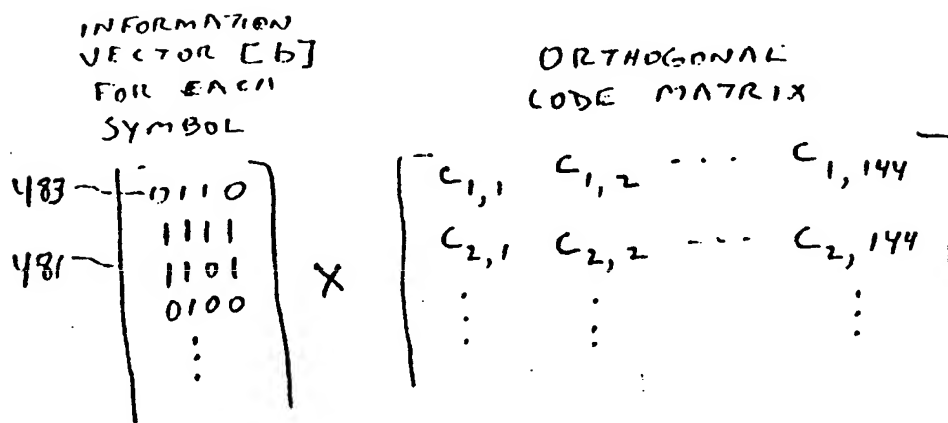 INFORMATION
VECTOR [b]
FOR EACH
SYMBOL
ORTHOGONAL
CODE MATRIX
483 0110
1111
481 1101
0100
⋮
X
C1,1 C1,2 --- C1,144
C2,1 C2,2 --- C2,144
⋮ ⋮ ⋮